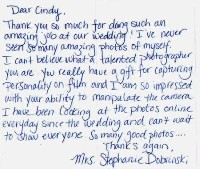 Dear Cindy,
Thank you so much for doing such an
amazing job at our wedding! I've never
seen so many amazing photos of myself.
I can't believe what a talented photographer
you are. You really have a gift for capturing
personality on film and I am so impressed
with your ability to manipulate the camera.
I have been looking at the photos online
everyday since the wedding and can't wait
to show everyone. So many good photos....
Thanks again,
Mrs. Stephanie